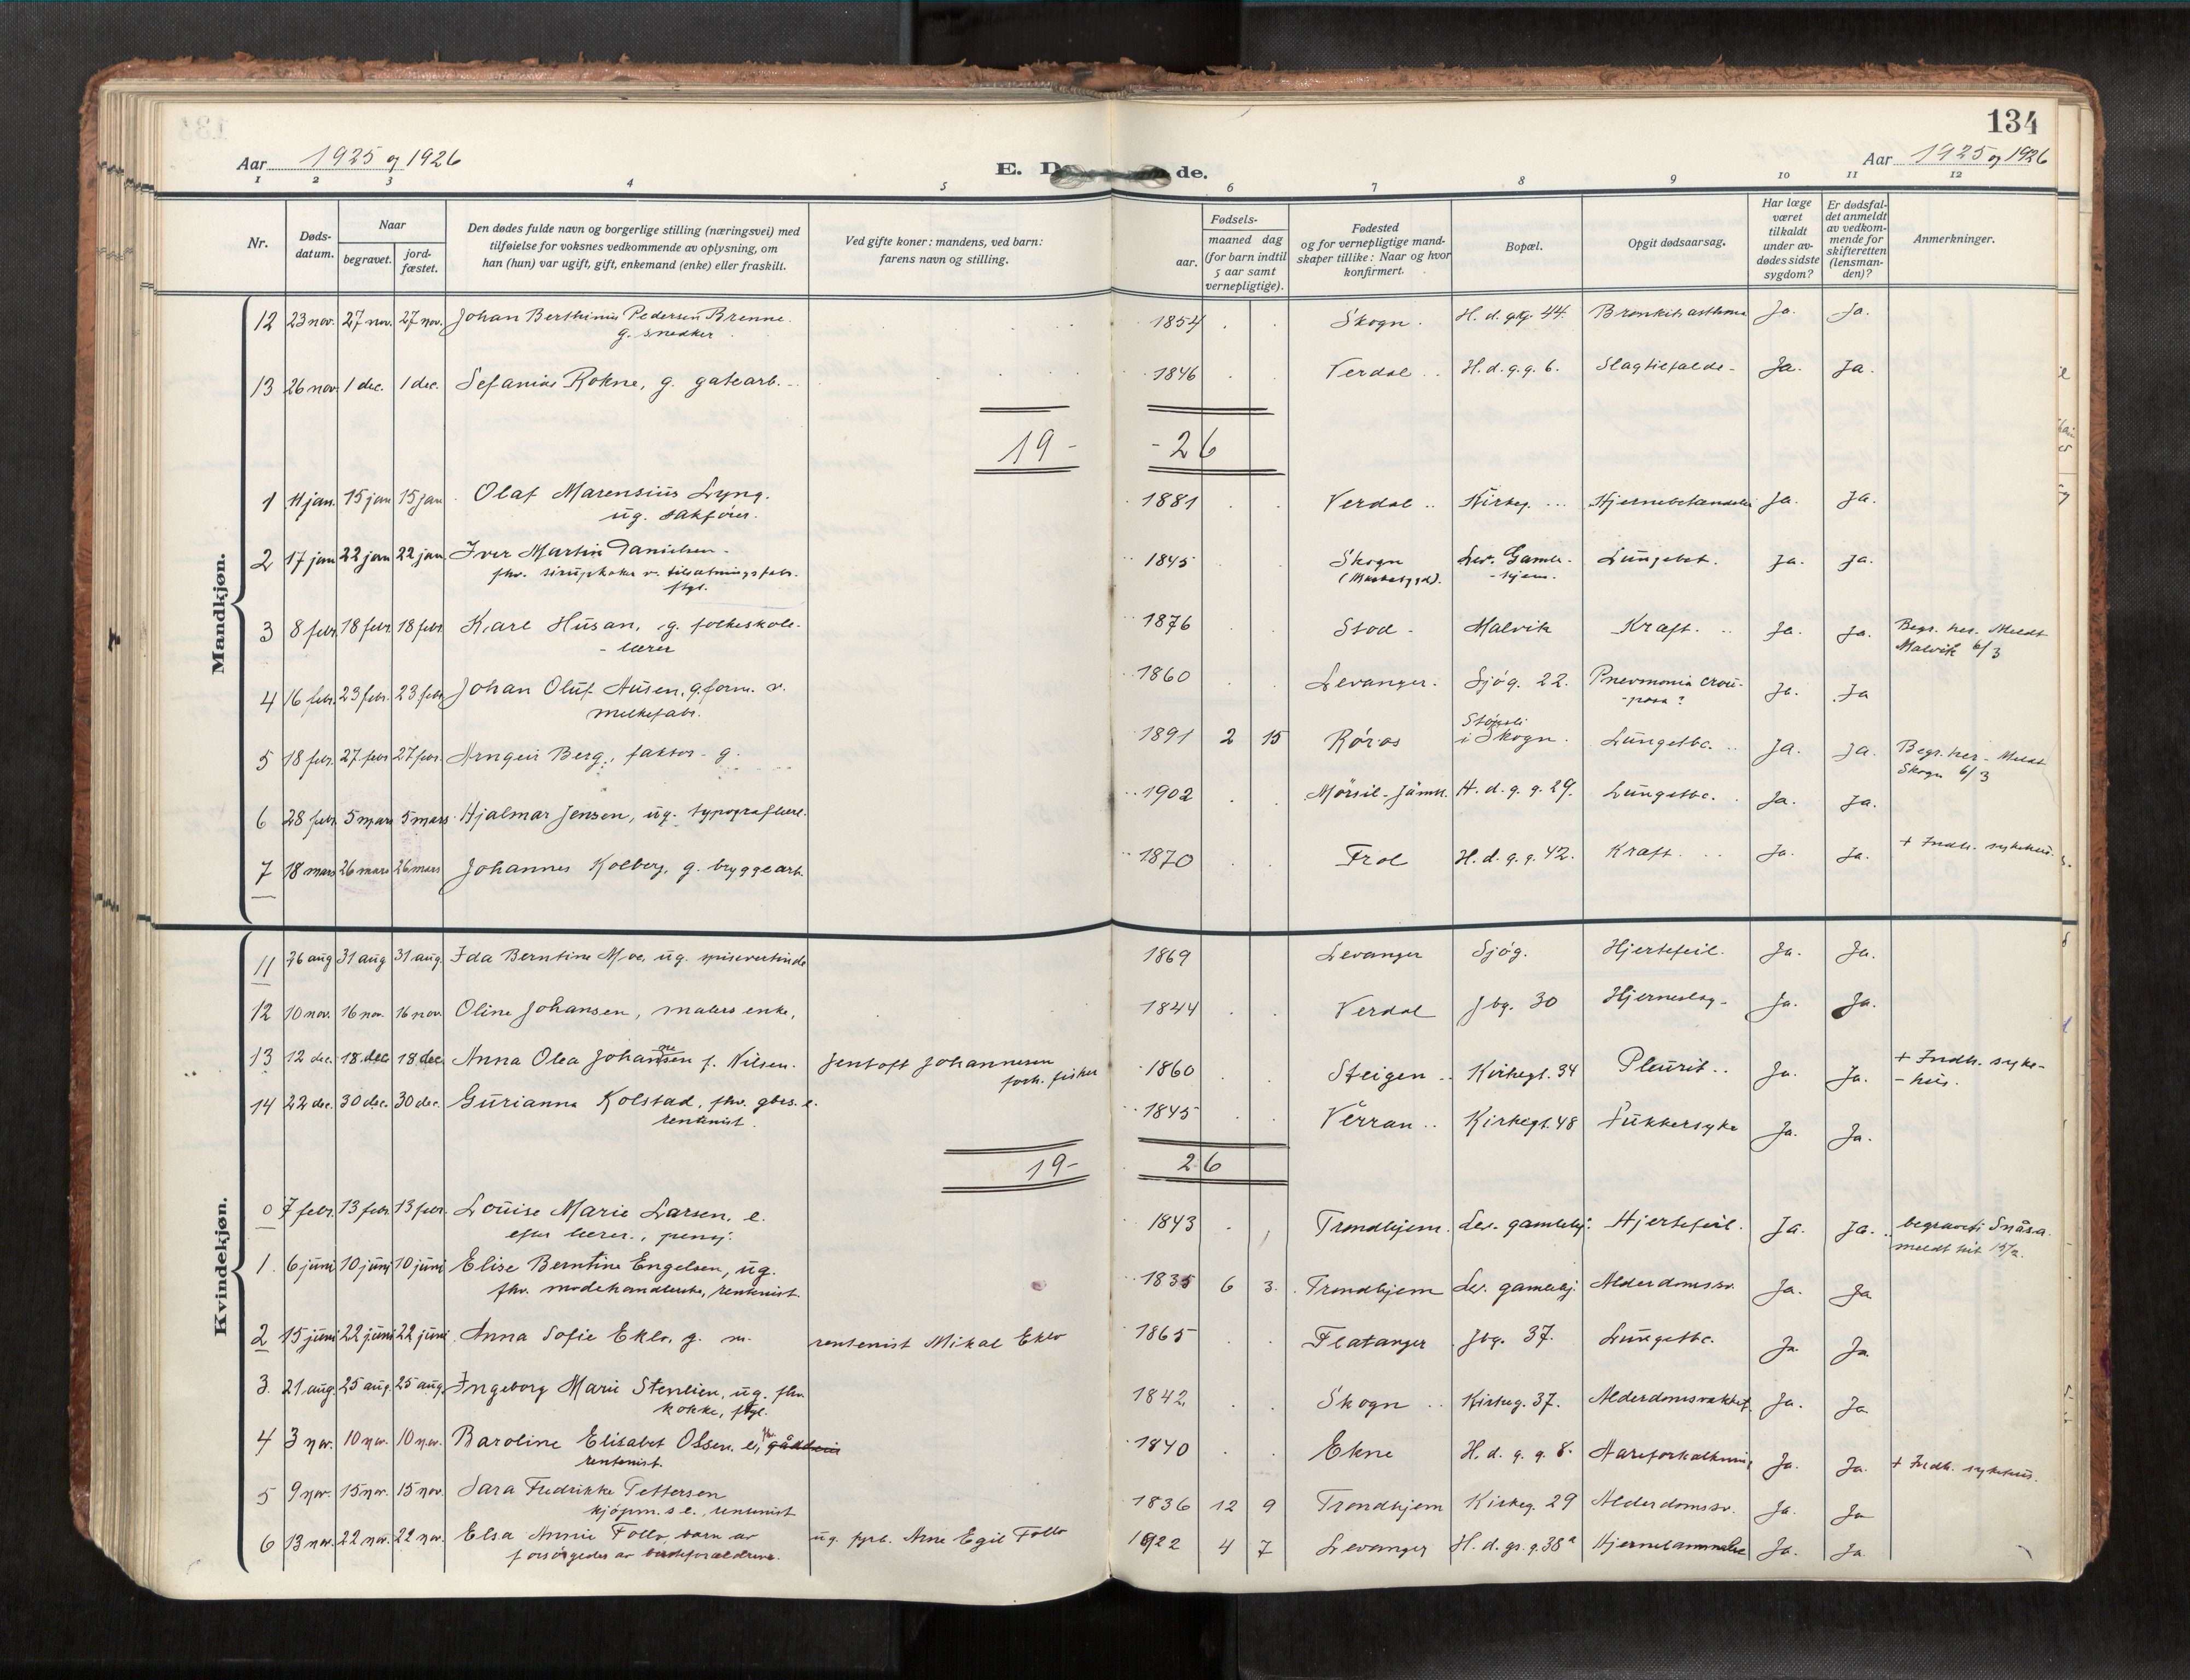 134
Aar 1925 og 1926
E. D de.
Aar 1925 og 1926
1 2 3 4 5 6 7 8 9 10 11 12
Nr.
Døds-
datum.
Naar
begravet.
jord-
fæstet.
Den dødes fulde navn og borgerlige stilling (næringsvei) med
tilføielse for voksnes vedkommende av oplysning, om
han (hun) var ugift, gift, enkemand (enke) eller fraskilt.
Ved gifte koner: mandens, ved barn:
farens navn og stilling.
Fødsels-
aar.
maaned dag
(for barn indtil
5 aar samt
vernepligtige).
Fødested
og for vernepligtige mand-
skaper tillike: Naar og hvor
konfirmert.
Bopæl.
Opgit dødsaarsag.
Har læge
været
tilkaldt
under av-
dødes sidste
sygdom?
Er dødsfal-
det anmeldt
av vedkom-
mende for
skifteretten
(lensman-
den)?
Anmerkninger.
Mandkjøn.
12 23 nov. 27 nov. 27 nov. Johan Berthinus Pedersen Brenne. 1854 Skogn. H. d. g.g. 44. Bronkit, asthma Ja. Ja.
g. snedker.
13 26 nov. 1 dec. 1 dec. Sefanias Rokne, g. gatearb. 1846 Verdal H. d. g. g. 6. Slagtilfælde Ja. Ja.
19 - - 26
1 11 jan. 15 jan 15 jan Olaf Marensius Lyng. 1881 Verdal Kirkeg. Hjernebetændelse Ja. Ja.
ug. sakfører.
2 17 jan 22 jan 22 jan Iver Martin Danielsen 1845 Skogn Lev. Gamle- Lungebet. Ja. Ja.
fhv. sirupkoker v. tilsætningsfabr. (Markabygd). -hjem.
ftgl.
3 8 febr. 18 febr. 18 febr. Karl Husan, g. folkeskole- 1876 Stod - Malvik Kræft. Ja. Ja. Begr. her. Meldt
- lærer Malvik 6/3
4 16 febr. 23 febr. 23 febr. Johan Oluf Ausen, g. form. v. 1860 Levanger. Sjøg. 22. Pnevmonia crou- Ja. Ja
melkefabr. -posa?
5 18 febr. 27 febr 27 febr. Arngeir Berg, faktor - g. 1891 2 15 Røros Støvsli
i Skogn. Lungetbc. Ja. Ja. Begr. her - Meldt
Skogn 6/3
6 28 febr. 5 mars 5 mars Hjalmar Jensen, ug. typograflærl. 1902 Mørsil - Jämtl. H. d. g. g. 29. Lungetbc. Ja. Ja.
7 18 mars 26 mars 26 mars Johannes Kolberg, g. bryggearb. 1870 Frol H. d. g. g. 42. Kræft. Ja. Ja. + Indh. sykehus.
Kvindekjøn.
11 26 aug 31 aug 31 aug. Ida Berntine Moe, ug. spisevertinde 1869 Levanger Sjøg. Hjertefeil. Ja. Ja.
12 10 nov. 16 nov. 16 nov. Oline Johansen, malers enke, 1844 Verdal Jbg. 30 Hjerneslag - Ja. Ja.
13 12 dec. 18 dec 18 dec. Anna Olea Johansen f. Nilsen. Jentoft Johannesen 1860 Steigen Kirkegt. 34 Pleurit. Ja. Ja. + Indh. syke-
forh. fisker - hus.
14 22 dec. 30 dec. 30 dec. Gurianna Kolstad, fhv. gbrs. e. 1845 Verran Kirkegt. 48 Sukkersyke Ja. Ja.
rentenist.
19 - 26
0 7 febr. 13 febr. 13 febr. Louise Marie Larsen, e. 1843 Trondhjem. Lev. gamlehj. Hjertefeil. Ja. Ja. begravet i Snåsa.
efter lærer, pensj. meldt hit
1. 6 juni 10 juni 10 juni Elise Berntine Engelsen, ug. 1835 6 3. Trondhjem Lev. gamlehj. Alderdomssv. Ja. Ja
fhv. modehandlerske, rentenist.
2 15 juni 22 juni 22 juni Anna Sofie Eklo, g. m. rentenist Mikal Eklo 1865 Flatanger Jbg. 37. Lungetbc. Ja Ja
3. 21 aug. 25 aug. 25 aug. Ingeborg Marie Stenlien, ug. fhv. 1842. Skogn Kirkeg. 37. Alderdomssvakhet Ja. Ja
kokke, ftgl.
4 3 nov. 10 nov. 10 nov. Baroline Elisabet Olsen e, fhv. 1840 Ekne H. d. g. g. 8. Aareforkalkning Ja. Ja. + Indh. sykehus.
rentenist.
5 9 nov. 15 nov. 15 nov. Sara Fredrikke Pettersen 1836 12 9 Trondhjem Kirkeg. 29 Alderdomssv. Ja. Ja
kjøpm. s e., rentenist
6 13 nov. 22 nov. 22 nov. Elsa Annie Follo, barn av ug. fyrb. Arne Egil Follo 1922 4 7 Levanger H. d. gs. g. 38a Ja. Ja.
forsørgedes av